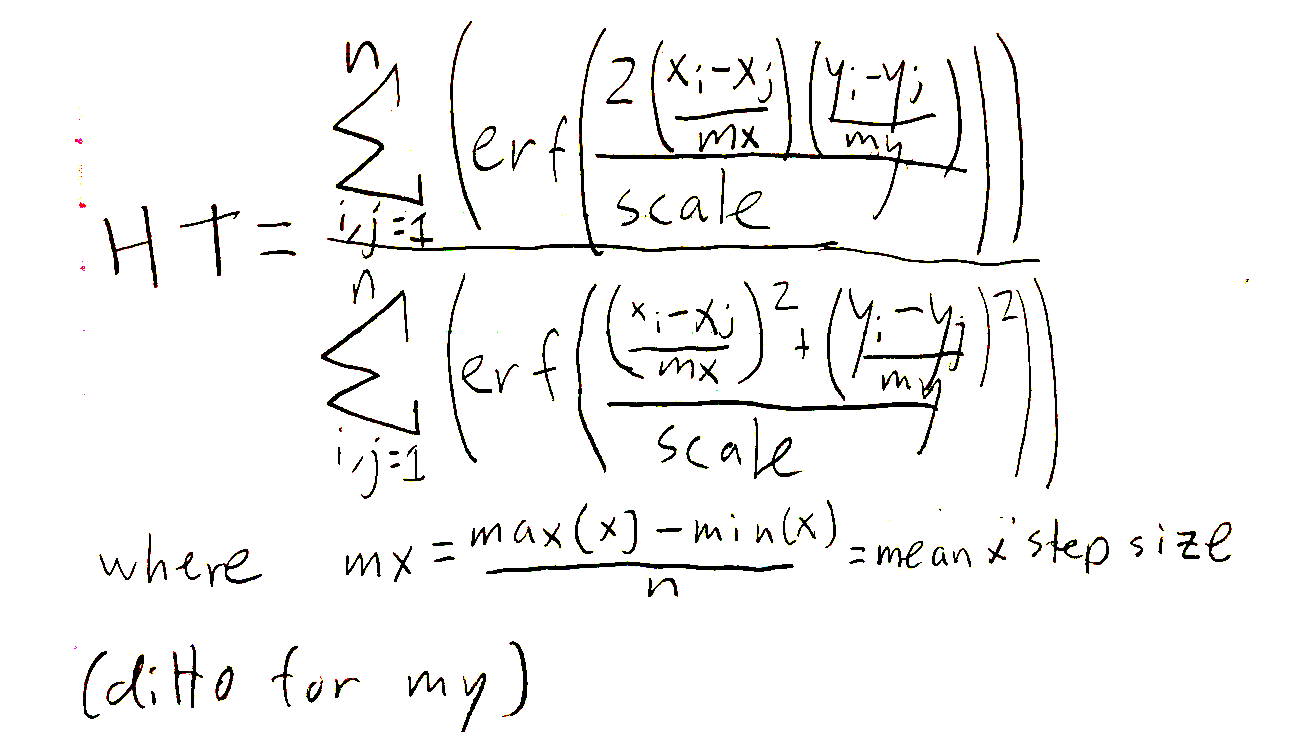 HT = \frac{\sum_{i,j=1}^{n} \left( erf \left( \frac{2 \left( \frac{x_i - x_j}{mx} \right) \left( \frac{y_i - y_j}{my} \right)}{scale} \right) \right)}{\sum_{i,j=1}^{n} \left( erf \left( \frac{\left( \frac{x_i - x_j}{mx} \right)^2 + \left( \frac{y_i - y_j}{my} \right)^2}{scale} \right) \right)}
where mx = \frac{max(x) - min(x)}{n} = mean x step size
(ditto for my)